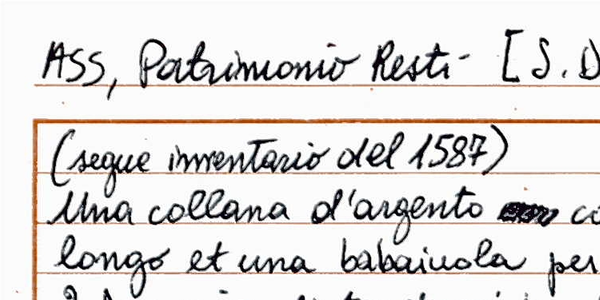 ASS, Patrimonio Resti- [S.D
(segue inventario del 1587)
Una collana d'argento
longo et una babaiuola per